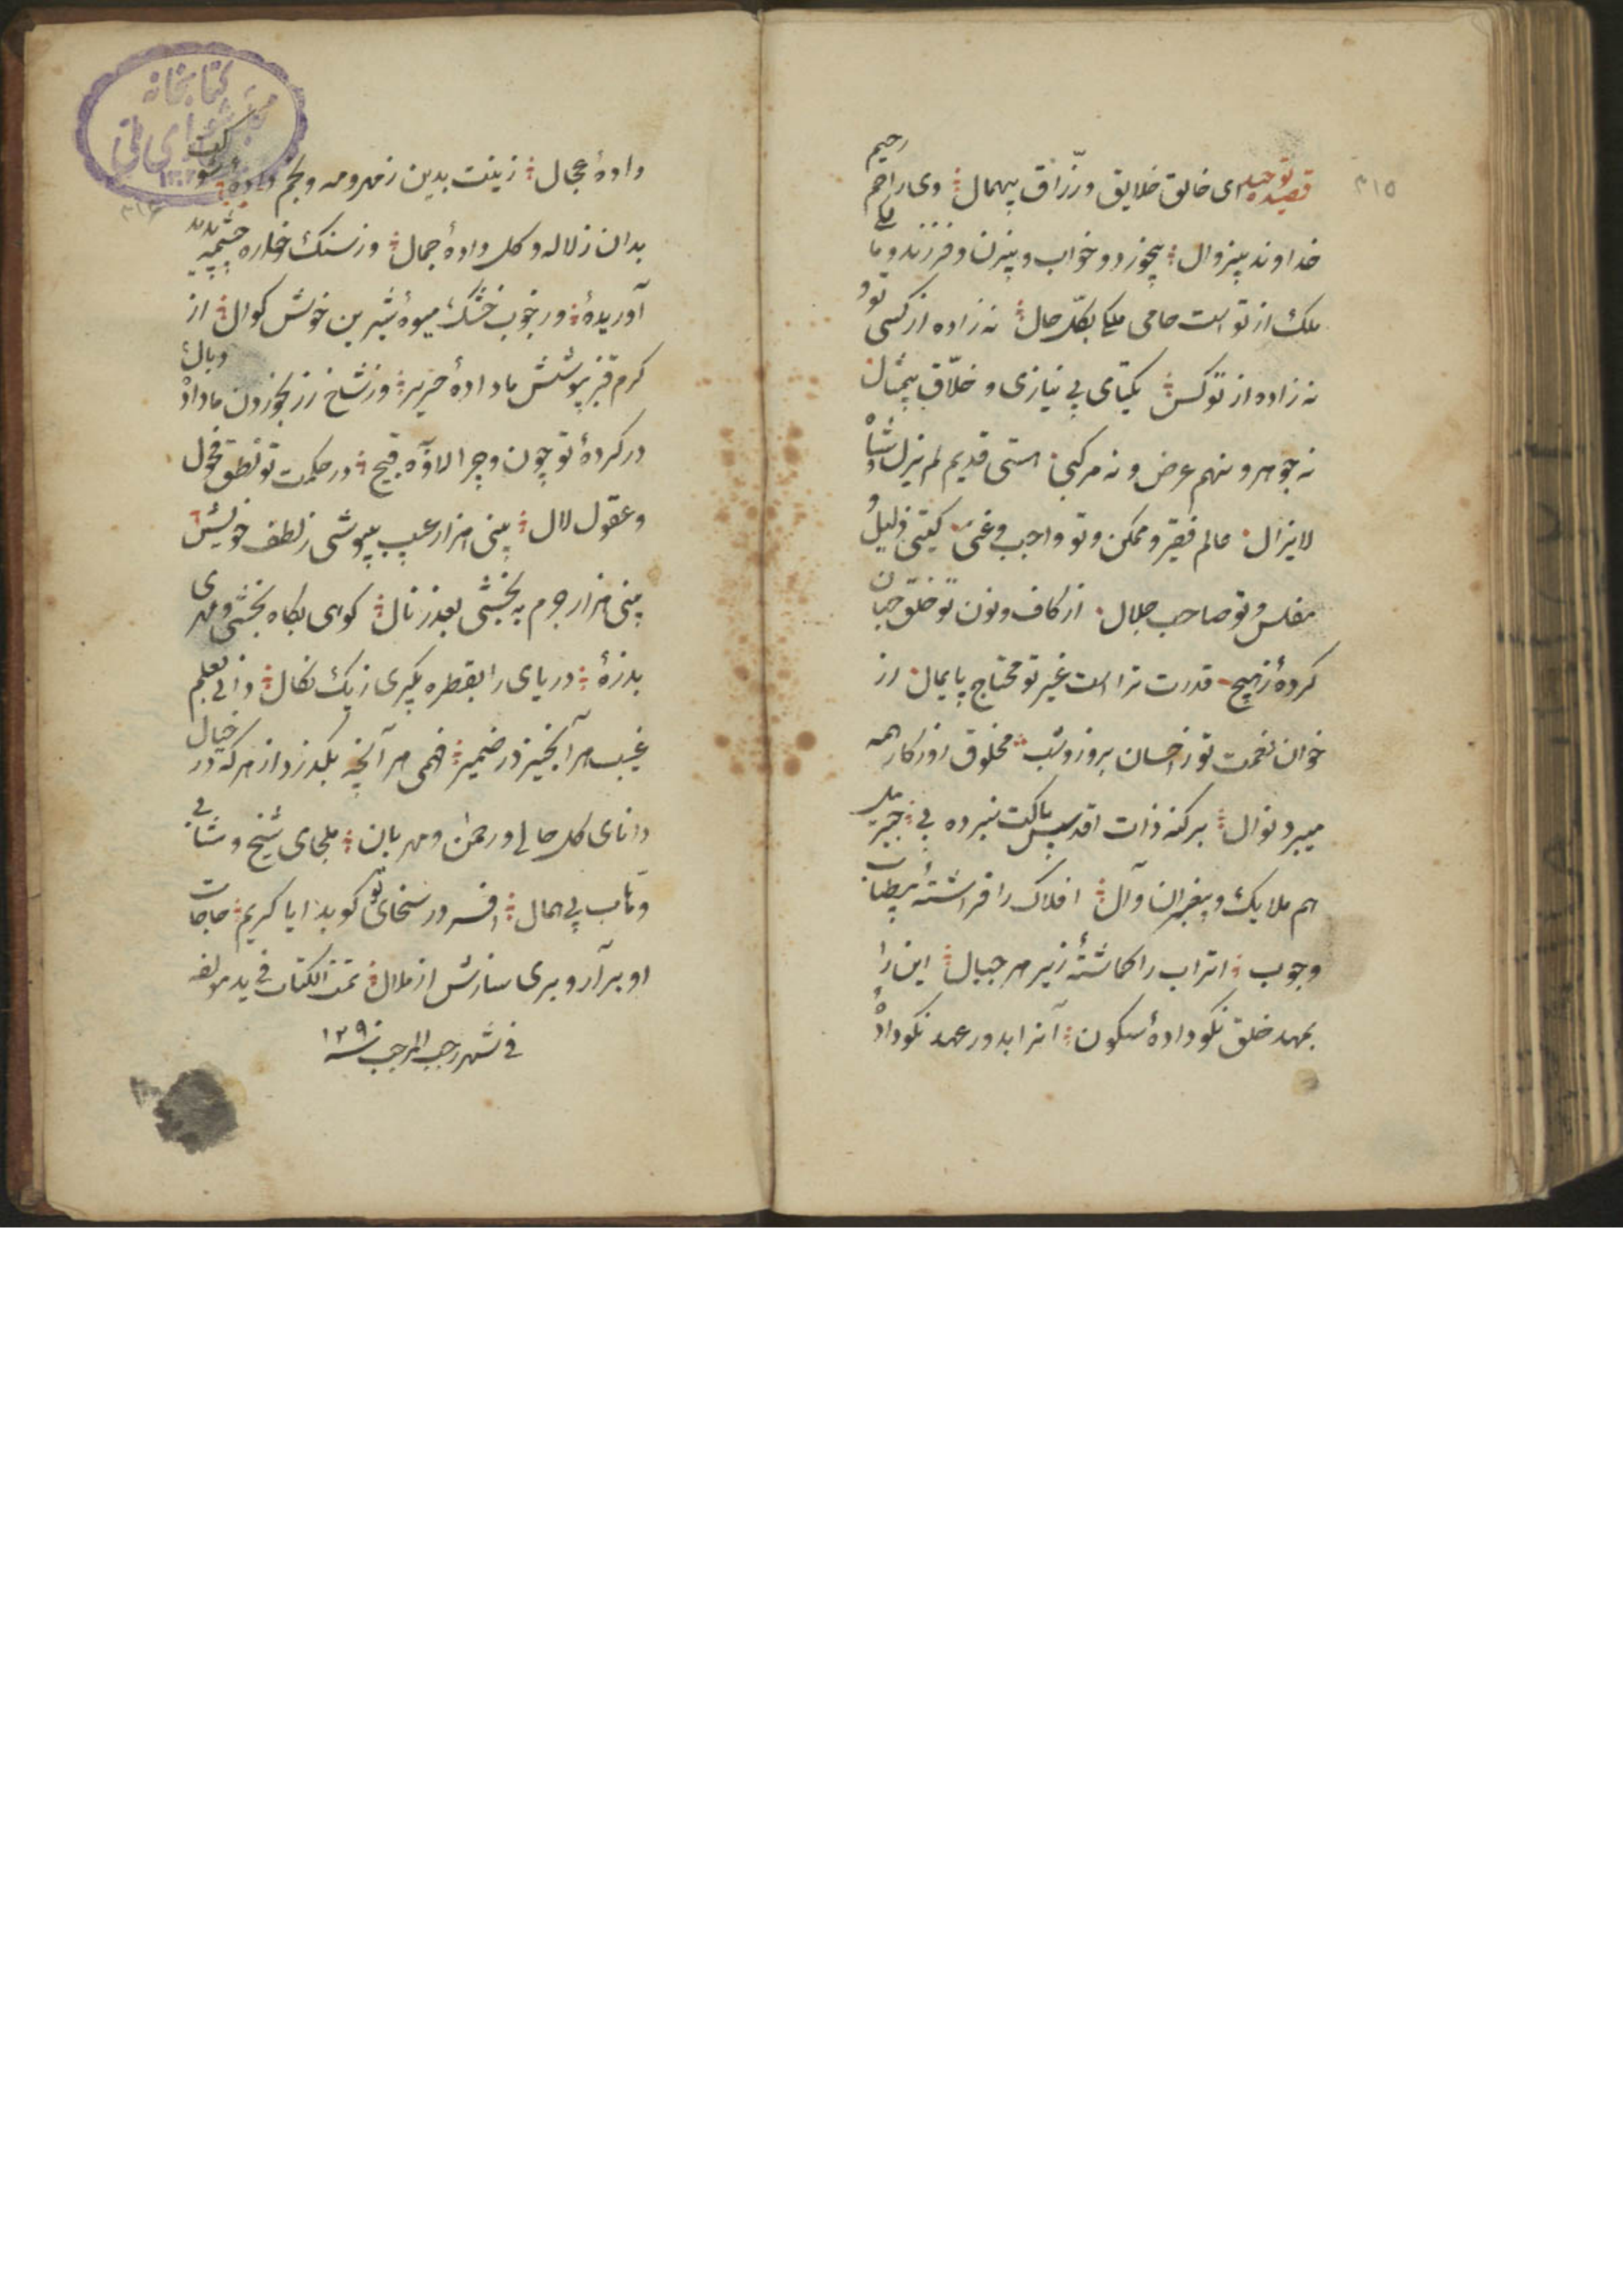 ۳۱۵
قصیده توحید ای خالق خلایق و رزّاق بیهمال وی راحم رحیم
خداوند بیزوال بیخورد و خواب و بیزن و فرزند و با
ملک از تو است حامی ملک بکلّ حال نه زاده از کسی تو و
نه زاده از تو کس یکتای بی نیازی و خلّاق بیمثال
نه جوهر و نهم عرض و نه مرکبی استی قدیم لم یزل
لایزال عالم فقیر و ممکن و تو واجب و غنی گیتی ذلیل و
مفلس و تو صاحب جلال از کاف و نون تو خلق جهان
کردهٔ زهیچ قدرت تراست غیر تو محتاج پایمال از
خوان نعمت تو ز احسان بروز و شب مخلوق روزگار همه
میبرد نوال بر کنه ذات اقدس پاکت نبرده پی جبریل
هم ملایک و پیغمبران و آل افلاک را فراشتهٔ بیطناب
وچوب اتراب را گماشتهٔ زیر هر جبال این را
بمهد خلق نکو دادهٔ سکون آنرا بدور عهد نکو دادهٔ
دادهٔ مجال زینت بدین ز مهر و مه و نجم
بدان ز لاله و گل دادهٔ جمال وز سنگ خاره چشمه پدید
آوریدهٔ ور چوب خشک میوهٔ شیرین خوش گوال از
کرم قز پوشش ما دادهٔ حریر وز شاخ رز بخوردن ما دادهٔ
در کردهٔ تو چون و چرا لاوّه قبیح در حکمت تو نطق فحول
و عقول لال بینی هزار عیب بپوشی ز لطف خویش
بینی هزار جرم به بخشی بعذر نال کوهی بکاه بخشی و مهری
بذرهٔ دریای را بقطره بگیری ز یک نکال دانی بعلم
غیب هر آنچیز در ضمیر فهمی هر آنچه بگذرد از هر که در خیال
دانای کل حالی و رحمن و مهربان ملجای شیخ و شابی
وهّاب بی همال افسر در سخای تو کوبد ایا کریم حاجات
او برآر و بری سازش از ملال تمت الکتاب فی ید مولفه
فی شهر رجب المرجب سنه ۱۲۹۰
کتابخانه
مجلس شورای ملی